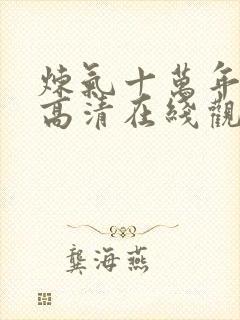 煉氣十萬年
高清在綫觀
龔海燕